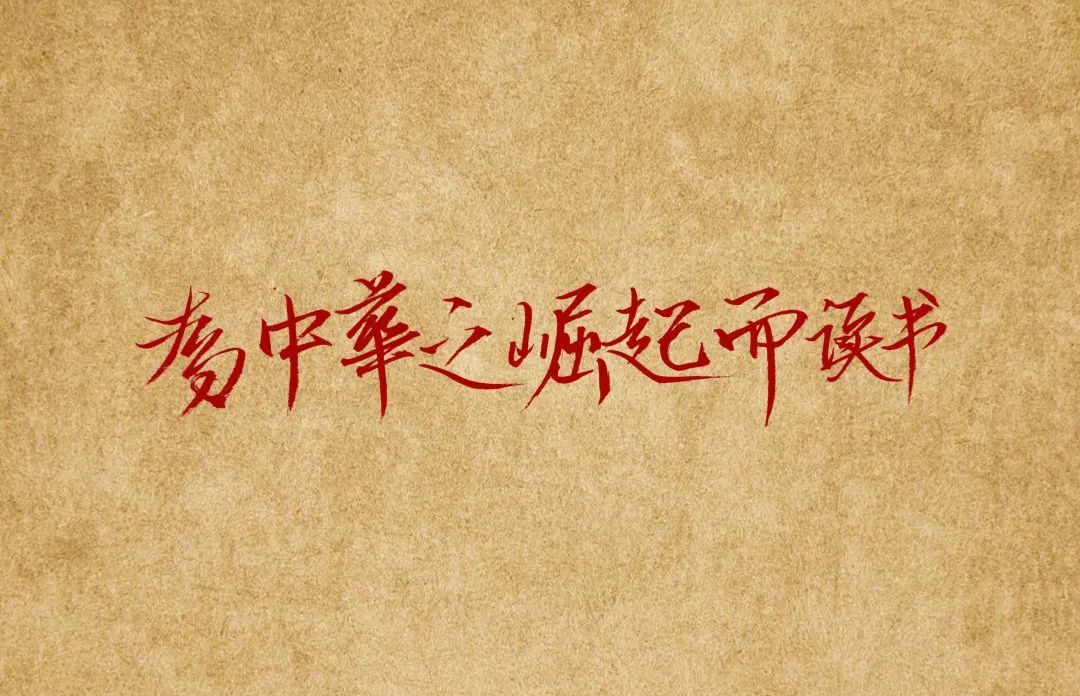 为中華之崛起而读书